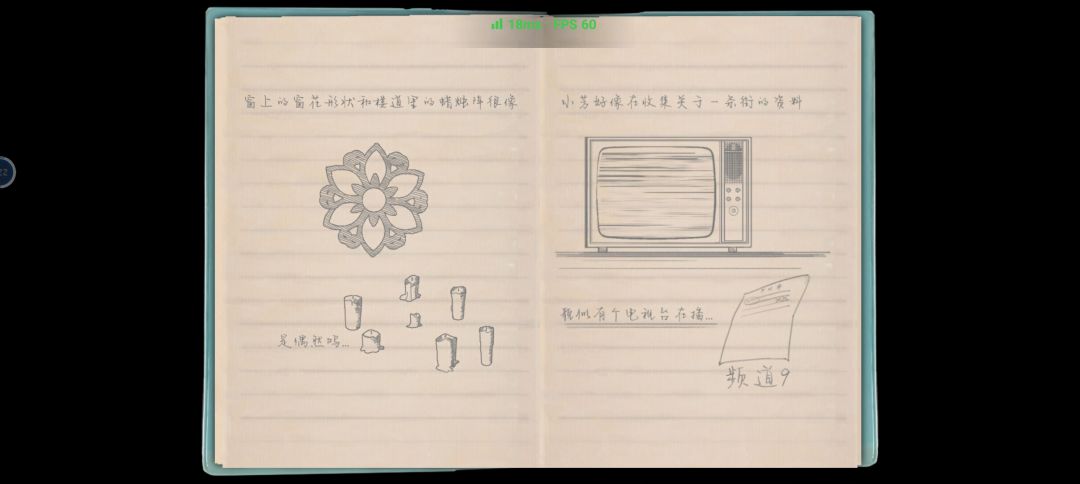 18ms FPS 60
窗上的窗花形状和楼道里的蜡烛阵很像
是偶然吗...
小芳好像在收集关于一条街的资料
貌似有个电视台在播...
频道9